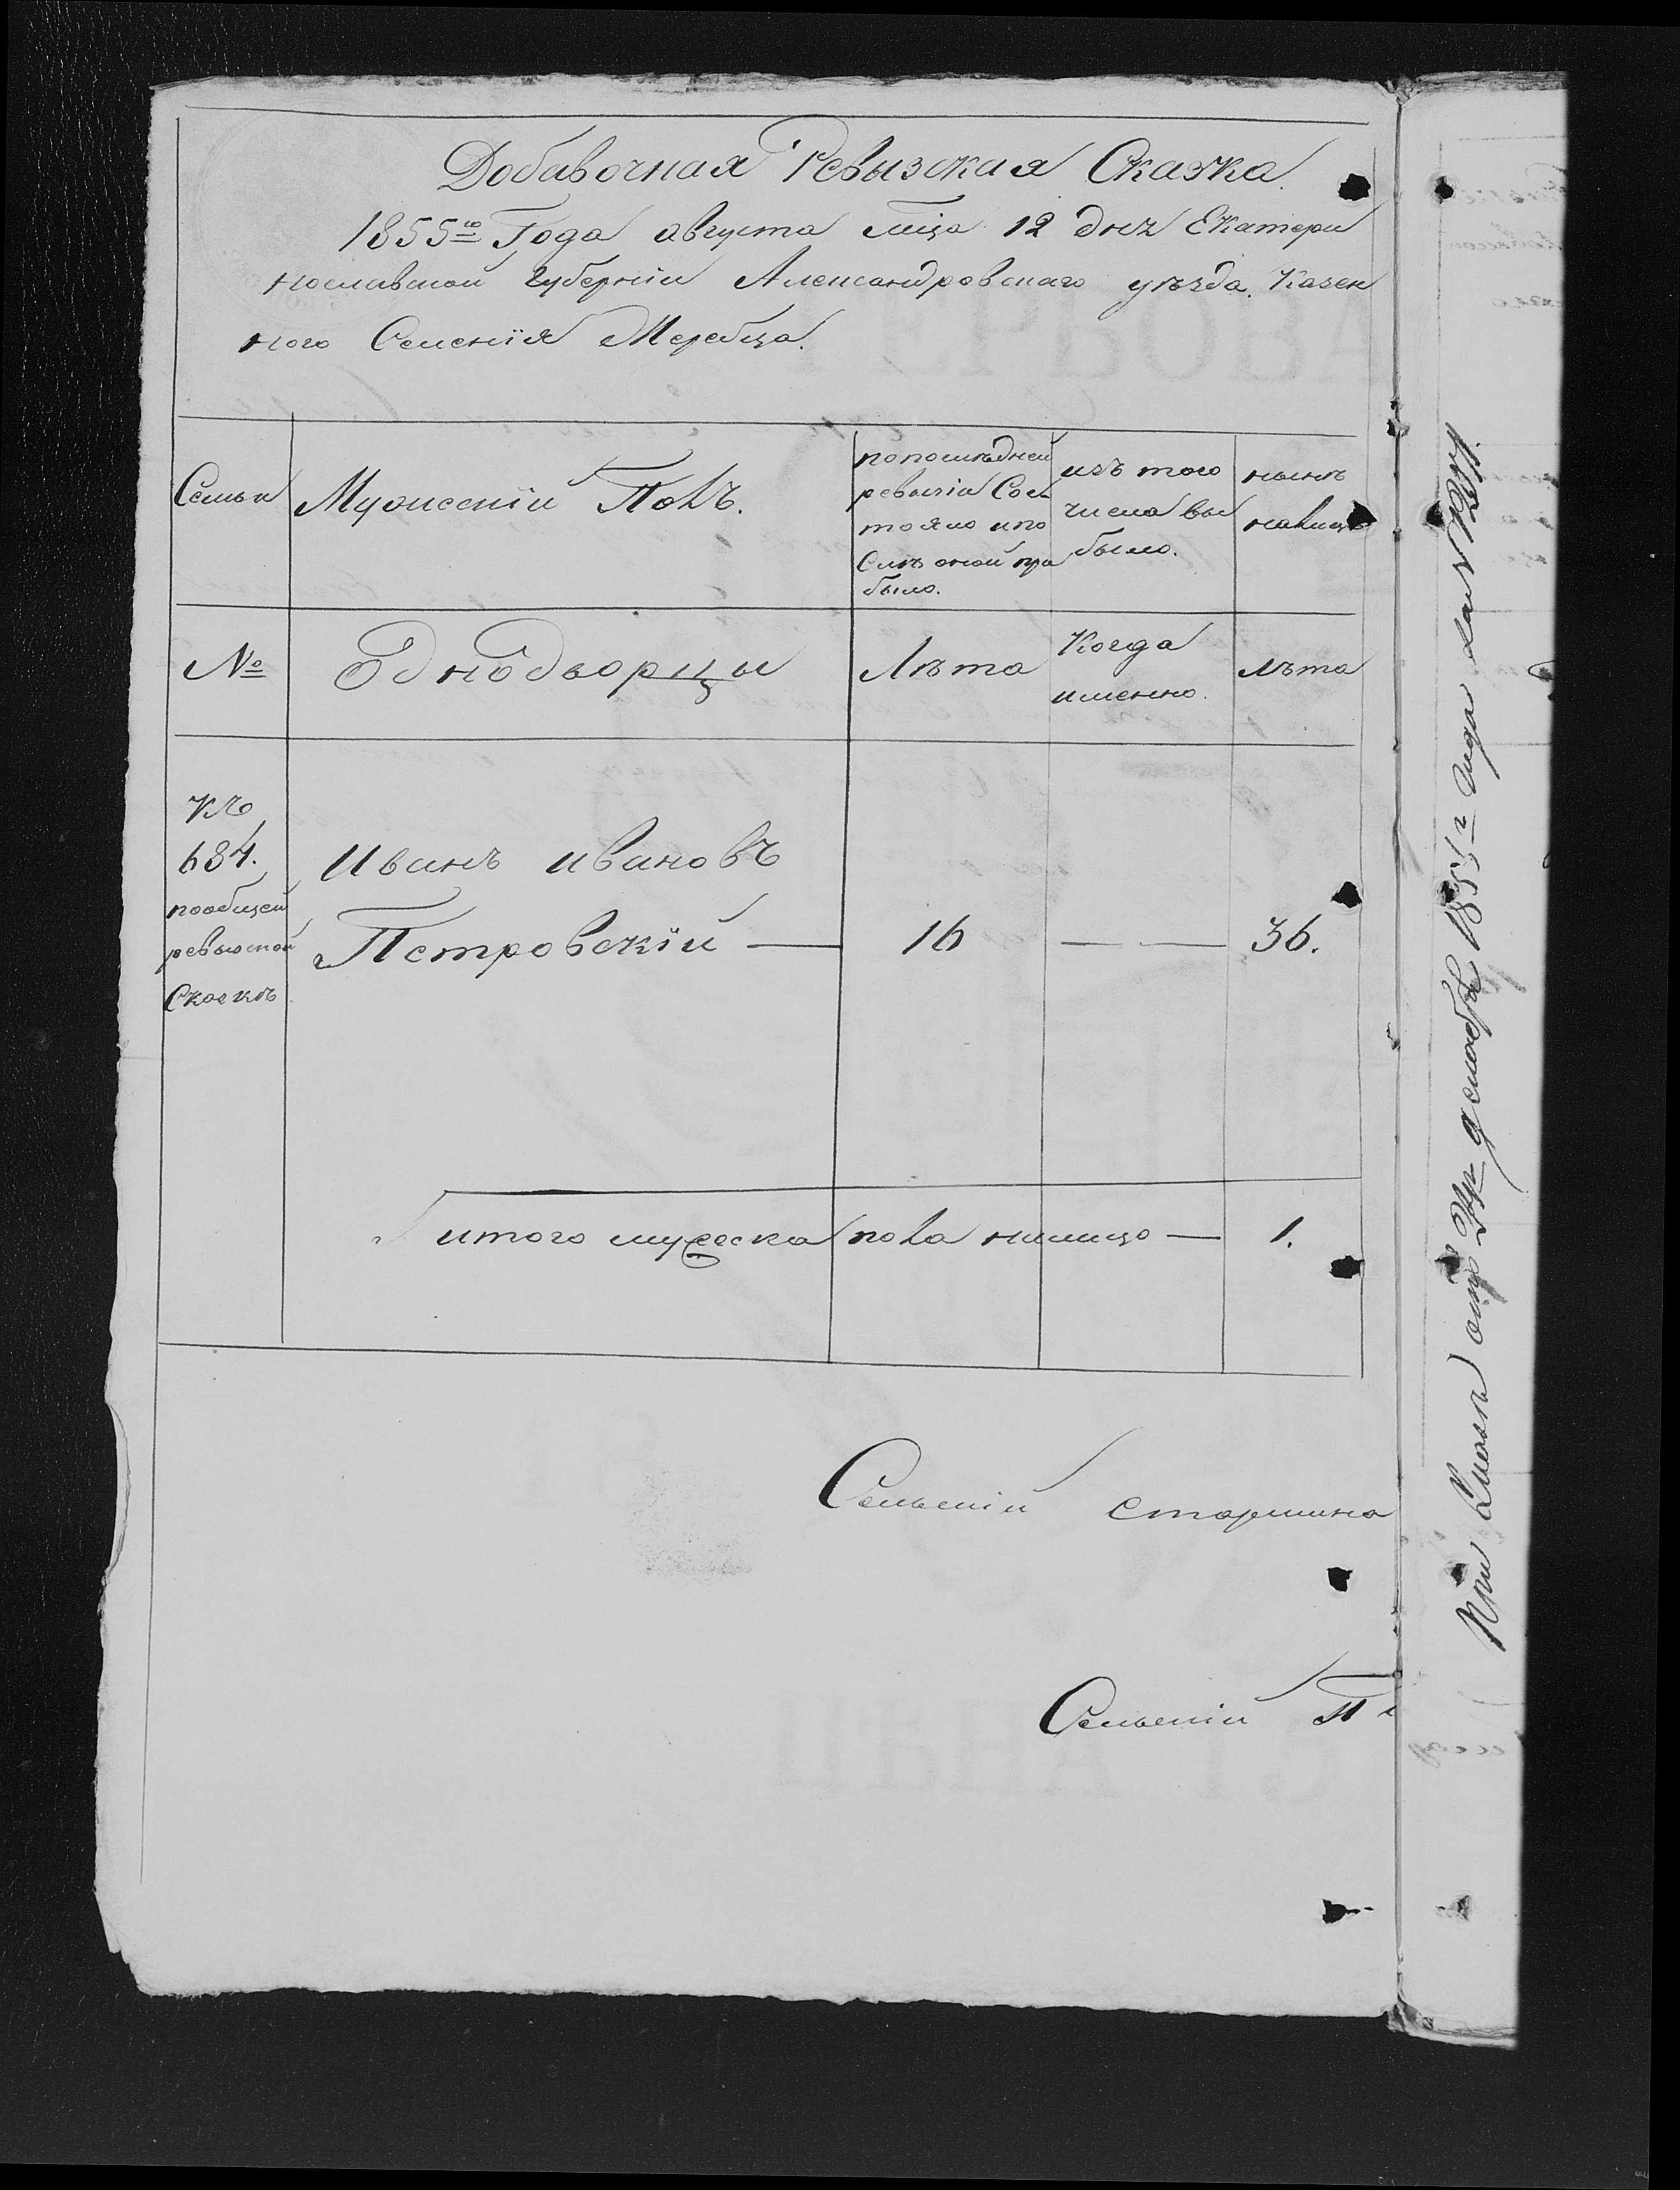 Добавочная Ревызская Сказка.
1855го Года августа мца 12 дня Екатери
нославской губернiи Александровскаго уезда. Казен
ного Селенiя Жеребца.
Семьи
Мужескiй Полъ.
по последней
ревызiи Сос
тояло и по
сле оной при
было.
изъ того
числа вы
было.
ныне
налицо
№
Однодворцы
Лета
Когда
именно.
лета
Къ
684.
по общей
ревызской
Сказке
Иванъ Ивановъ
Петровскiй — 16 — — 36.
итого мужеска пола налицо — 1.
Сельскiй старшина
Сельскiй П
При Сказке отъ декабря 1855г года за №